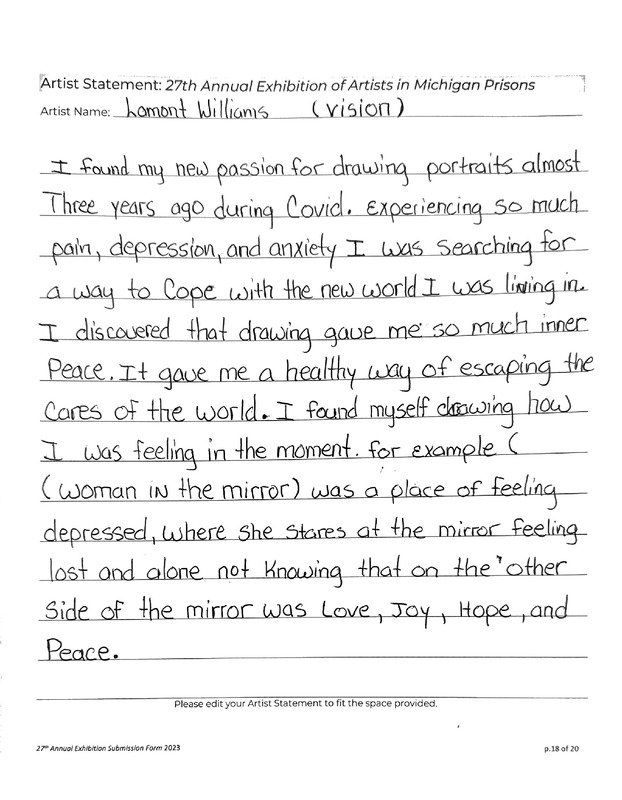 Artist Statement: 27th Annual Exhibition of Artists in Michigan Prisons
Artist Name: Lamont Williams (vision)
I found my new passion for drawing portraits almost
Three years ago during Covid. Experiencing so much
pain, depression, and anxiety I was searching for
a way to Cope with the new world I was living in.
I discovered that drawing gave me so much inner
Peace. It gave me a healthy way of escaping the
Cares of the world. I found myself drawing how
I was feeling in the moment. for example (
(Woman in the mirror) was a place of feeling
depressed, where she stares at the mirror feeling
lost and alone not Knowing that on the other
Side of the mirror was Love, Joy, Hope, and
Peace.
Please edit your Artist Statement to fit the space provided.
27th Annual Exhibition Submission Form 2023 p.18 of 20